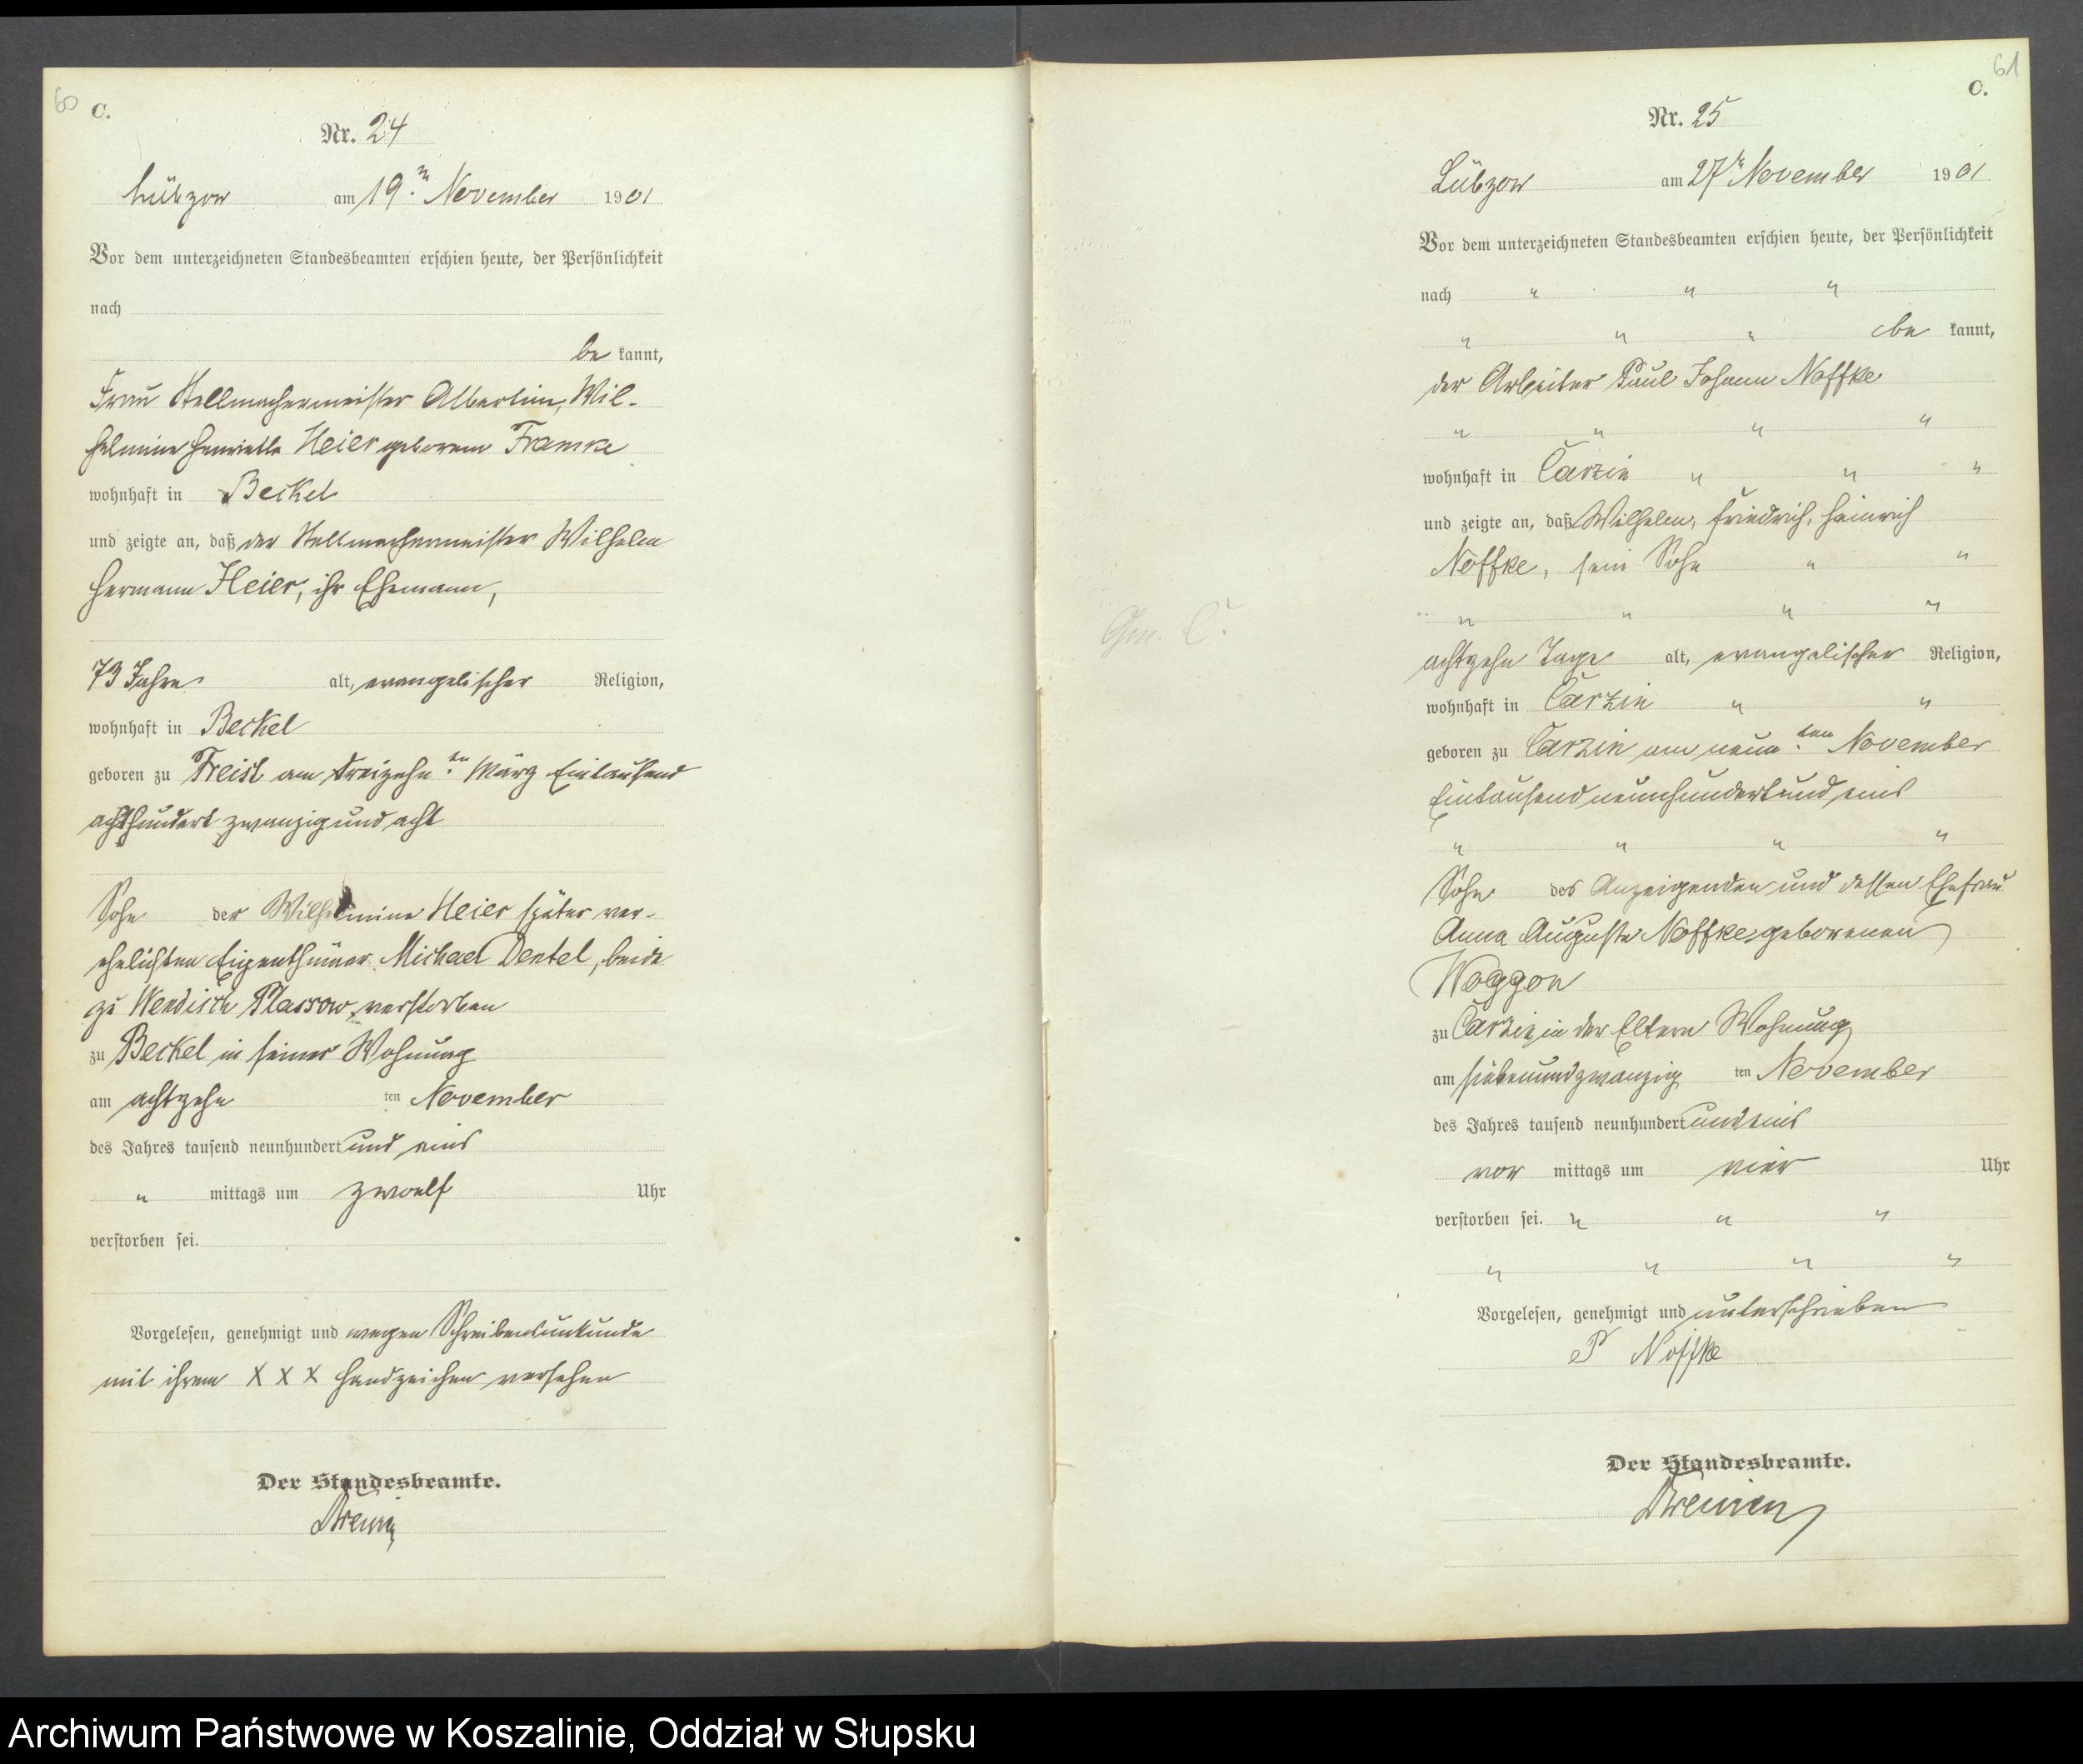 60
C.
Nr. 24
Lübzow am 19. n November 1901
Vor dem unterzeichneten Standesbeamten erschien heute, der Persönlichkeit
nach
be kannt,
Frau Stellmachermeister Albertine, Wil-
helmine Henriette Heier geborene Framke
wohnhaft in Beckel
und zeigte an, daß der Stellmachermeister Wilhelm
Hermann Heier, ihr Ehemann,
73 Jahre alt, evangelischer Religion,
wohnhaft in Beckel
geboren zu Freist am dreizehn ten März Eintausend
achthundert zwanzig und acht
Sohn der Wilhelmine Heier später ver-
ehelichten Eigenthümer Michael Dentel, beide
zu Wendisch Plassow verstorben
zu Beckel in seiner Wohnung
am achtzehn ten November
des Jahres tausend neunhundert und eins
" mittags um zwoelf Uhr
verstorben sei.
Vorgelesen, genehmigt und wegen Schreibensunkunde
mit ihrem X X X Handzeichen versehen
Der Standesbeamte.
61
C.
Nr. 25
Lübzow am 27 November 1901
Vor dem unterzeichneten Standesbeamten erschien heute, der Persönlichkeit
nach " " "
" " " be kannt,
der Arbeiter Paul Johann Noffke
" " " "
wohnhaft in Carzin " " "
und zeigte an, daß Wilhelm, Friedrich, Heinrich
Noffke, sein Sohn " "
" " " "
achtzehn Tage alt, evangelischer Religion,
wohnhaft in Carzin " "
geboren zu Carzin am neun ten November
Eintausend neunhundert und eins
" " " "
Sohn des Anzeigenden und dessen Ehefrau
Anna Auguste Noffke geborenen
Woggon
zu Carzin in der Eltern Wohnung
am siebenundzwanzig ten November
des Jahres tausend neunhundert und eins
vor mittags um vier Uhr
verstorben sei. " " "
" " " "
Vorgelesen, genehmigt und unterschrieben
P Noffke
Der Standesbeamte.
Archiwum Państwowe w Koszalinie, Oddział w Słupsku